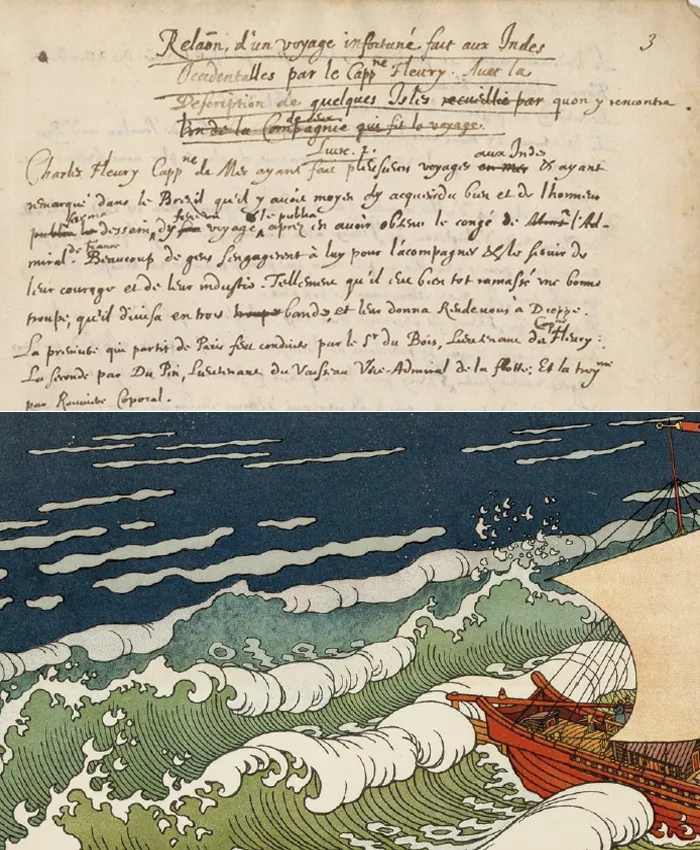 Relaõn, d'un voyage infortuné fait aux Indes
3
Occidentalles par le Cappne Fleury. Avec la
Description de quelques Isles recueillie par quon y rencontre.
l'un de la Compagnie qui fit le voyage.
de ceux
Livre. 1.
Charles Fleury Cappne de Mer ayant fait plusieurs voyages en mer & ayant
aux Inde
remarqué dans le Brezil qu'il y avoit moyen dy acquerir du bien et de lhonneur
dessein, dy voyage, aprez en avoir obtenu le congé de l'Ad-
le publia
miral de France. Beaucoup de gens sengagerent à luy pour l'acompagner & le servir de
leur courage et de leur industrie. Tellement qu'il eut bien tot ramassé une bonne
troupe, qu'il divisa en trois troupe bandes, et leur donna Rendevous à Dieppe.
La premiere qui partit de Paris feu conduite par le Sr du Bois, Lieutenant du Fleury:
La seconde par Du Pin, Lieutenant du Vaisseau Vice-Admiral de la flotte; Et la troyme
par Corporal.